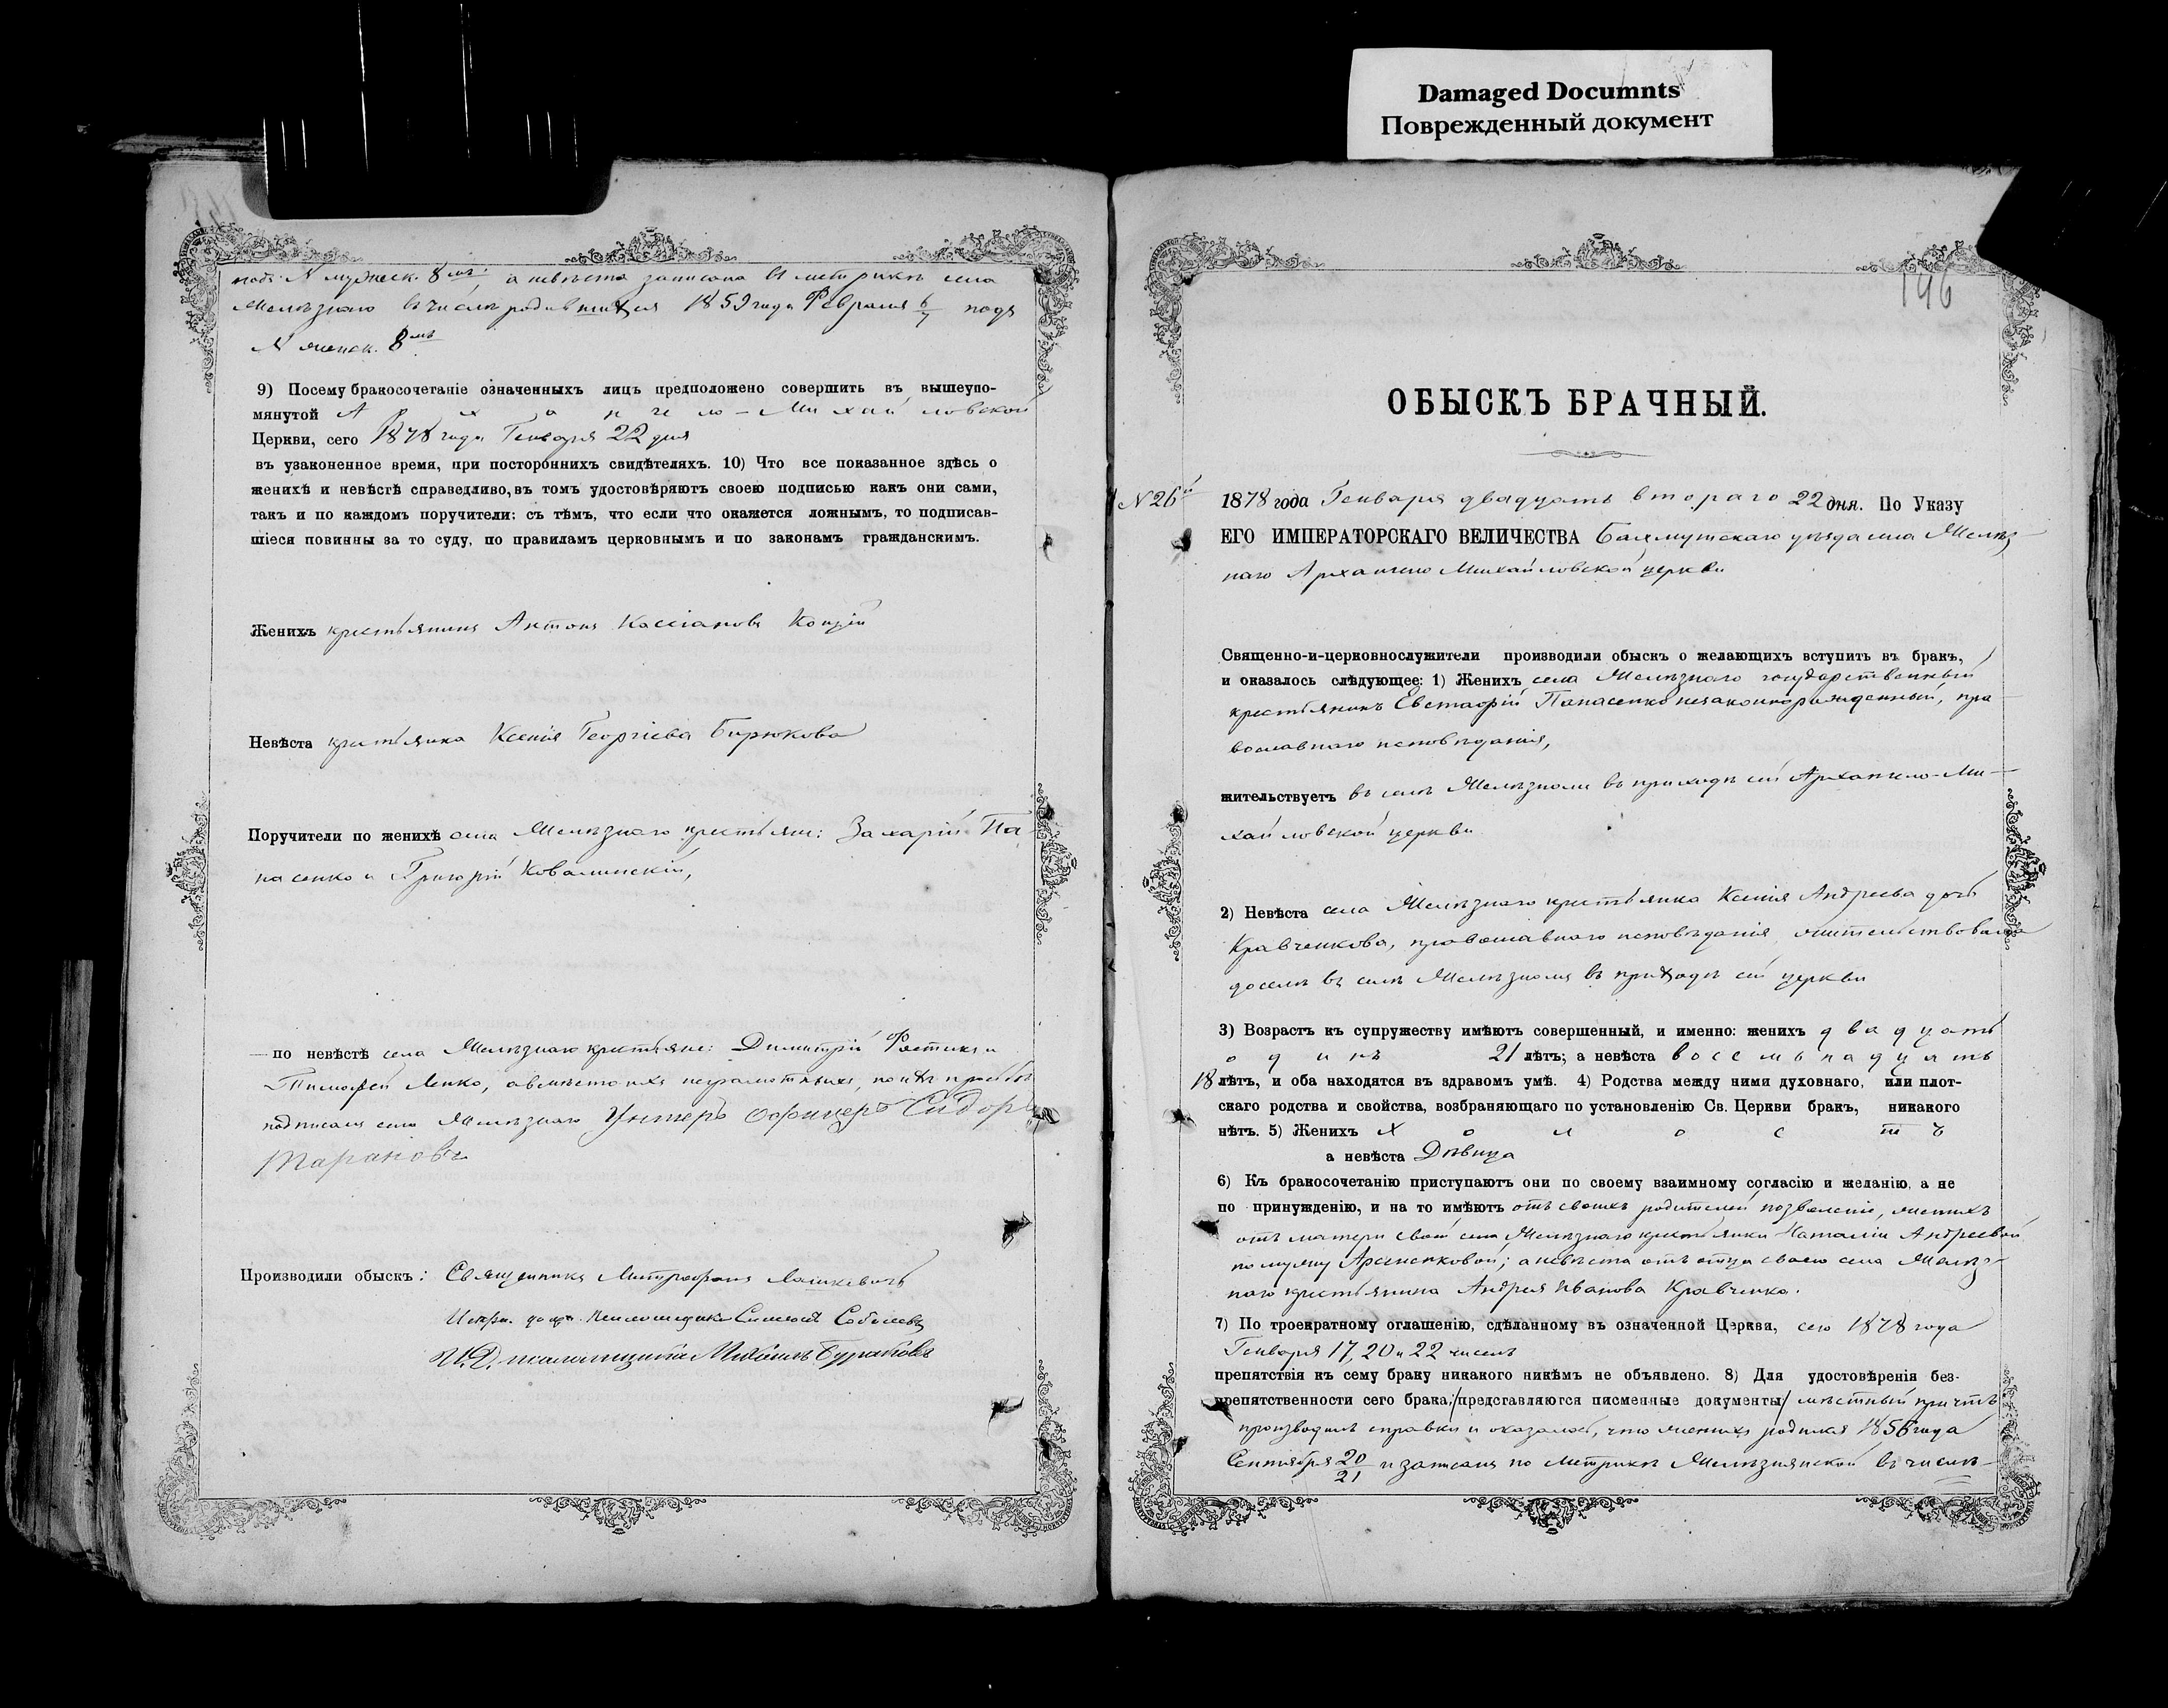 Damaged Documnts
Поврежденный документ
подъ N мужеск. 8мъ; а невѣста записана въ метрикѣ села
Желѣзнаго въ числѣ родившихся 1859 года Февраля 6/7 подъ
N женск. 8мъ
9) Посему бракосочетаніе означенныхъ лицъ предположено совершить въ вышеупо-
мянутой Архангело-Михайловской
Церкви, сего 1878 года Генваря 22 дня
въ узаконенное время, при постороннихъ свидѣтеляхъ. 10) Что все показанное здѣсь о
женихѣ и невѣстѣ справедливо, въ томъ удостовѣряютъ своею подписью какъ они сами,
такъ и по каждомъ поручители: съ тѣмъ, что если что окажется ложнымъ, то подписав-
шіеся повинны за то суду, по правиламъ церковнымъ и по законамъ гражданскимъ.
Женихъ крестьянинъ Антонъ Кассіановъ
Невѣста крестьянка Ксенія Георгіева Бирюкова
Поручители по женихѣ села Желѣзнаго крестьяне: Захарій Па-
насенко и Григорій Ковалинскій,
— по невѣстѣ села Желѣзнаго крестьяне: Димитрій
Тимофей а вмѣсто ихъ неграмотныхъ, по ихъ прозьбѣ
подписалъ села Желѣзнаго Унтеръ офицеръ Сидоръ
Тарановъ
Производили обыскъ: Священникъ Митрофанъ
Симеонъ Соболевъ
И. Д. псаломщика Михаилъ Бураковъ
196
ОБЫСКЪ БРАЧНЫЙ.
N 26й 1878 года Генваря двадцать втораго 22 дня. По Указу
ЕГО ИМПЕРАТОРСКАГО ВЕЛИЧЕСТВА Бахмутскаго уѣзда села Желѣз-
наго Архангело Михайловской церкви
Священно-и-церковнослужители производили обыскъ о желающихъ вступить въ бракъ,
и оказалось слѣдующее: 1) Женихъ села Желѣзнаго государственный
крестьянинъ Евстафій Панасенко незаконнорожденный, пра-
вославнаго исповѣданія,
жительствуетъ въ селѣ Желѣзномъ въ приходѣ сей Архангело-Ми-
хайловской церкви
2) Невѣста села Желѣзнаго крестьянка Ксенія Андреева дочь
Кравченкова, православнаго исповѣданія жительствовала
доселѣ въ селѣ Желѣзномъ въ приходѣ сей церкви
3) Возрастъ къ супружеству имѣютъ совершенный, и именно: женихъ двадцать
одинъ 21 лѣтъ; а невѣста восемьнадцать
18 лѣтъ, и оба находятся въ здравомъ умѣ. 4) Родства между ними духовнаго, или плот-
скаго родства и свойства, возбраняющаго по установленію Св. Церкви бракъ, никакого
нѣтъ. 5) Женихъ холостъ
а невѣста Дѣвица
6) Къ бракосочетанію приступаютъ они по своему взаимному согласію и желанію, а не
по принужденію, и на то имѣютъ отъ своихъ родителей позволеніе, женихъ
отъ матери своей села Желѣзнаго крестьянки Наталіи Андреевой
по мужу Арсененковой; а невѣста отъ отца своего села Желѣз-
наго крестьянина Андрея Иванова Кравченка.
7) По троекратному оглашенію, сдѣланному въ означенной Церкви, сего 1878 года
Генваря 17, 20 и 22 чиселъ
препятствія къ сему браку никакого никѣмъ не объявлено. 8) Для удостовѣренія без-
препятственности сего брака, /представляются писменные документы/ мѣстный причтъ
производилъ справки и оказалось, что женихъ родился 1856 года
Сентября 20/21 и записанъ по Метрикѣ Желѣзнянской въ числѣ